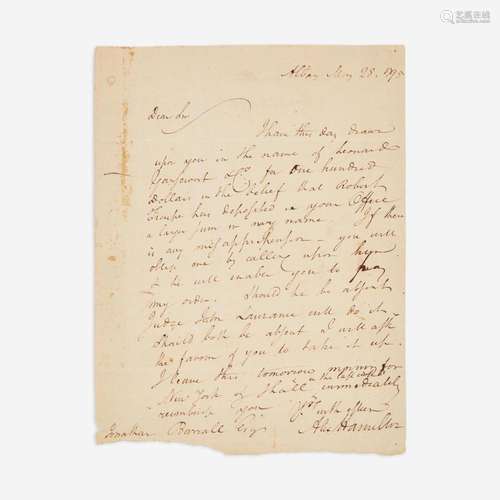 Albany May 28. 1795
Dear Sir
I have this day drawn
upon you in the name of Leonard
Gansevoort for one hundred
Dollars in the belief that Robert
Troupe has deposited in your Office
a larger sum in my name. If there
is any misapprehension - you will
oblige me by calling upon him
& he will enable you to pay
my order. Should he be absent
Judge John Laurance will do it
Should both be absent I will ask
the favour of you to take it up.
I leave this tomorrow morning for
New York & shall in the last case immediately
reimburse you Yrs. with esteem
Jonathan Burrall Esq A Hamilton